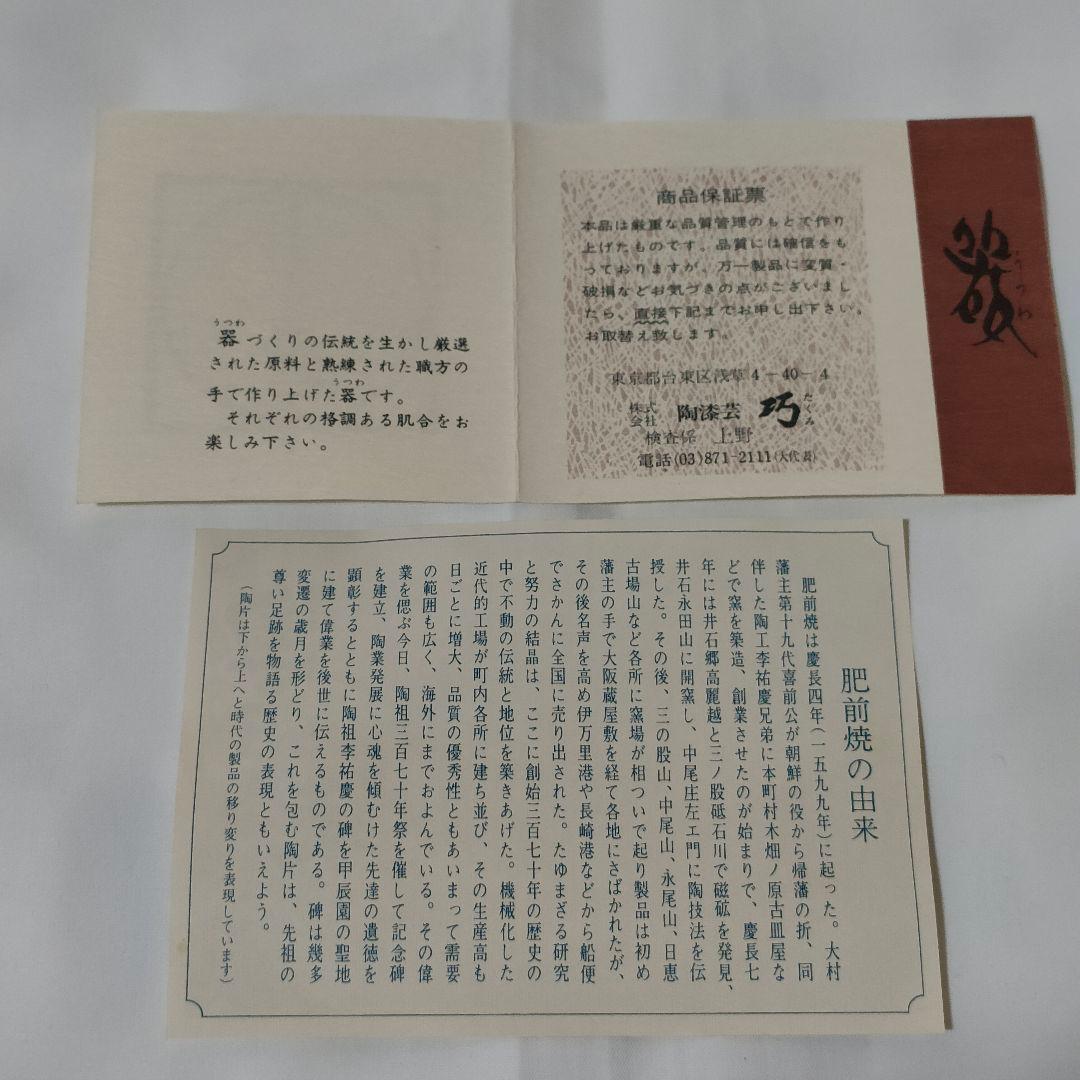 器づくりの伝統を生かし厳選
された原料と熟練された職方の
手で作り上げた器です。
それぞれの格調ある肌合をお
楽しみ下さい。
うつわ
うつわ
商品保証票
本品は厳重な品質管理のもとで作り
上げたものです。品質には確信をも
っておりますが、万一製品に変質・
破損などお気づきの点がございまし
たら、直接下記までお申し出下さい。
お取替え致します。
東京都台東区浅草4-40-4
株式会社 陶漆芸 巧
たくみ
検査係 上野
電話(03)871-2111(大代表)
うつわ
肥前焼の由来
肥前焼は慶長四年(一五九九年)に起った。大村
藩主第十九代喜前公が朝鮮の役から帰藩の折、同
伴した陶工李祐慶兄弟に本町村木畑ノ原古皿屋な
どで窯を築造、創業させたのが始まりで、慶長七
年には井石郷高麗越と三ノ股砥石川で磁砿を発見、
井石永田山に開窯し、中尾庄左エ門に陶技法を伝
授した。その後、三の股山、中尾山、永尾山、日恵
古場山など各所に窯場が相ついで起り製品は初め
藩主の手で大阪蔵屋敷を経て各地にさばかれたが、
その後名声を高め伊万里港や長崎港などから船便
でさかんに全国に売り出された。たゆまざる研究
と努力の結晶は、ここに創始三百七十年の歴史の
中で不動の伝統と地位を築きあげた。機械化した
近代的工場が町内各所に建ち並び、その生産高も
日ごとに増大、品質の優秀性ともあいまって需要
の範囲も広く、海外にまでおよんでいる。その偉
業を偲ぶ今日、陶祖三百七十年祭を催して記念碑
を建立、陶業発展に心魂を傾むけた先達の遺徳を
顕彰するとともに陶祖李祐慶の碑を甲辰園の聖地
に建て偉業を後世に伝えるものである。碑は幾多
変遷の歳月を形どり、これを包む陶片は、先祖の
尊い足跡を物語る歴史の表現ともいえよう。
(陶片は下から上へと時代の製品の移り変りを表現しています)